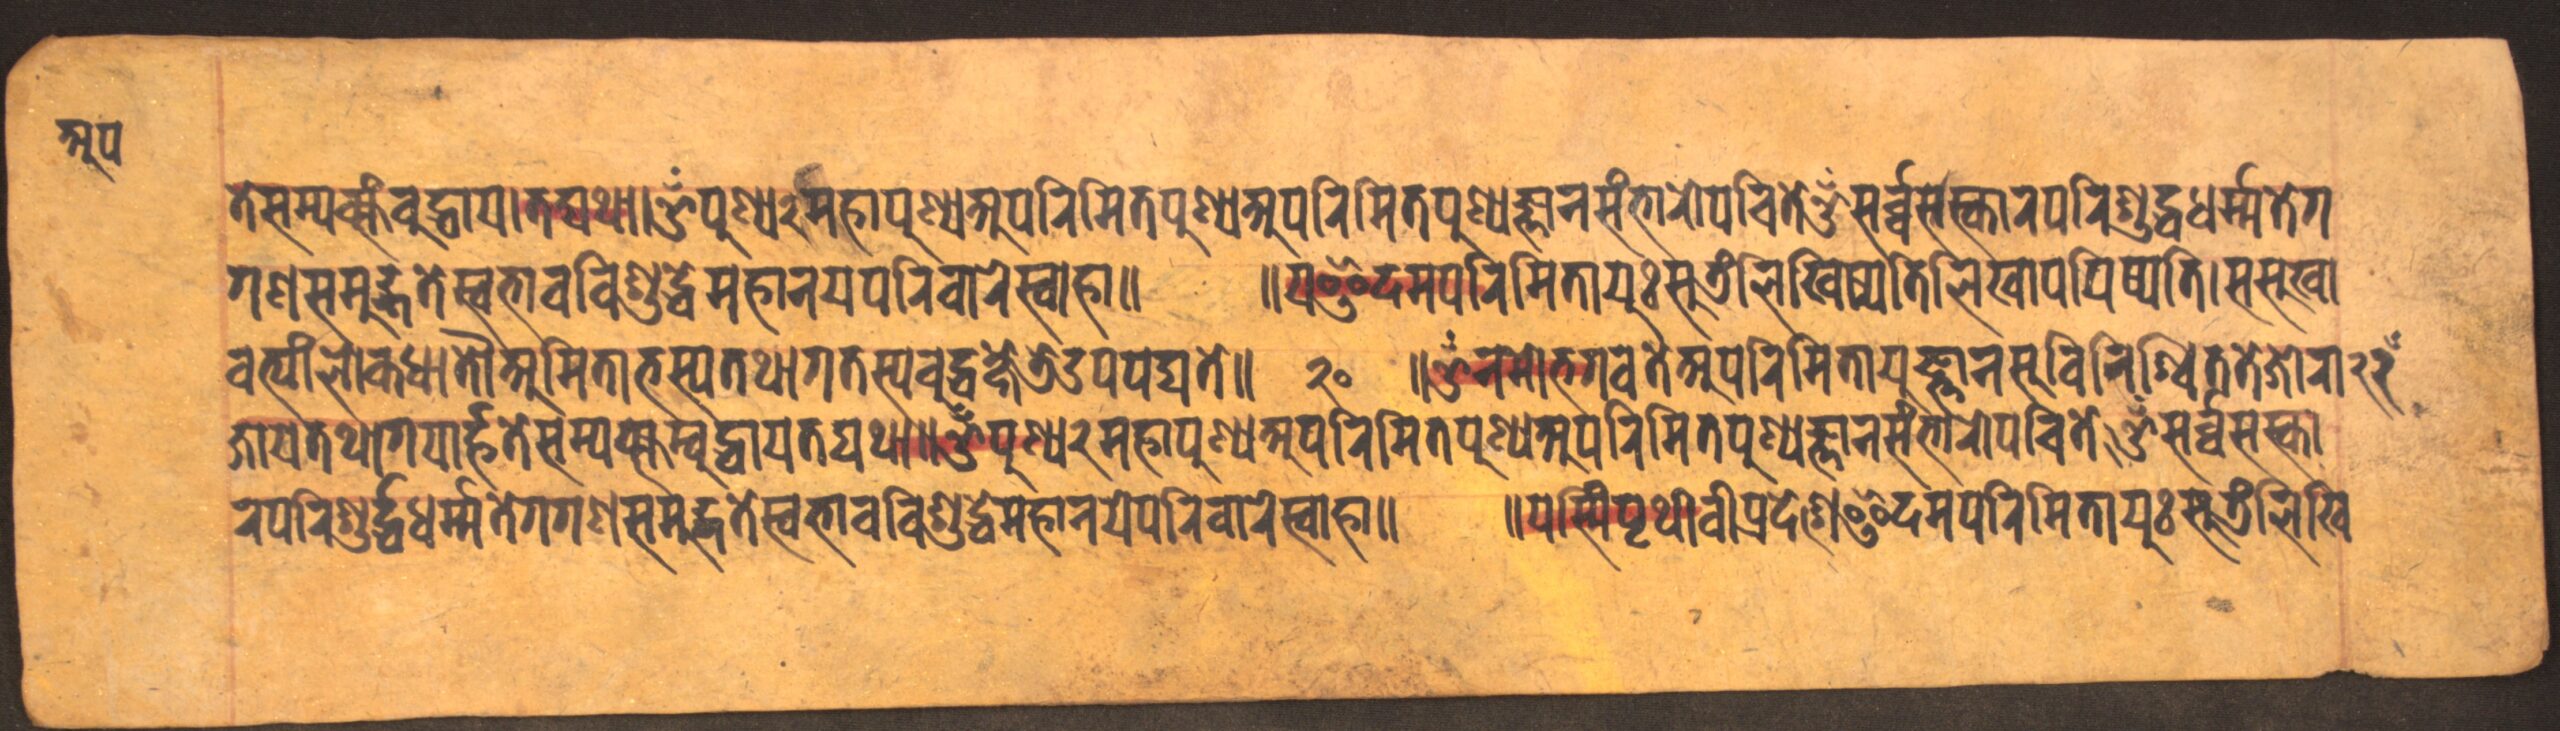 अप
ते सम्यक्संबुद्धाय। तद्यथा॥ ॐ पुण्य २ महापुण्य अपरिमितपुण्य अपरिमितपुण्यज्ञानसंभारोपचिते ॐ सर्व्वसंस्कारपरिशुद्धधर्म्मते ग
गणसमुद्गते स्वभावविशुद्धे महानयपरिवारे स्वाहा॥ ॥ य इदमपरिमितायुः सुत्रं लिखिष्यति लिखापयिष्यति। स सुखा
वत्यां लोकधातौ अमिताभस्य तथागतस्य बुद्धक्षेत्रे उपपद्यते॥ २० ॥ ॐ नमो भगवते अपरिमितायुज्ञानसुविनिश्चिततेजोरा
जाय तथागयार्हते सम्यक्सम्बुद्धाय तद्यथा॥ ॐ पुण्य २ महापुण्य अपरिमितपुण्य अपरिमितपुण्यज्ञानसंभारोपचिते ॐ सर्व्वसस्का
रपरिशुर्द्धधर्म्मते गगणसमुद्गते स्वभावविशुद्धे महानये परिवारे स्वाहा॥ ॥ यस्मिं पृथीवीप्रदेशे इदमपरिमितायुः सुत्रं लिखि